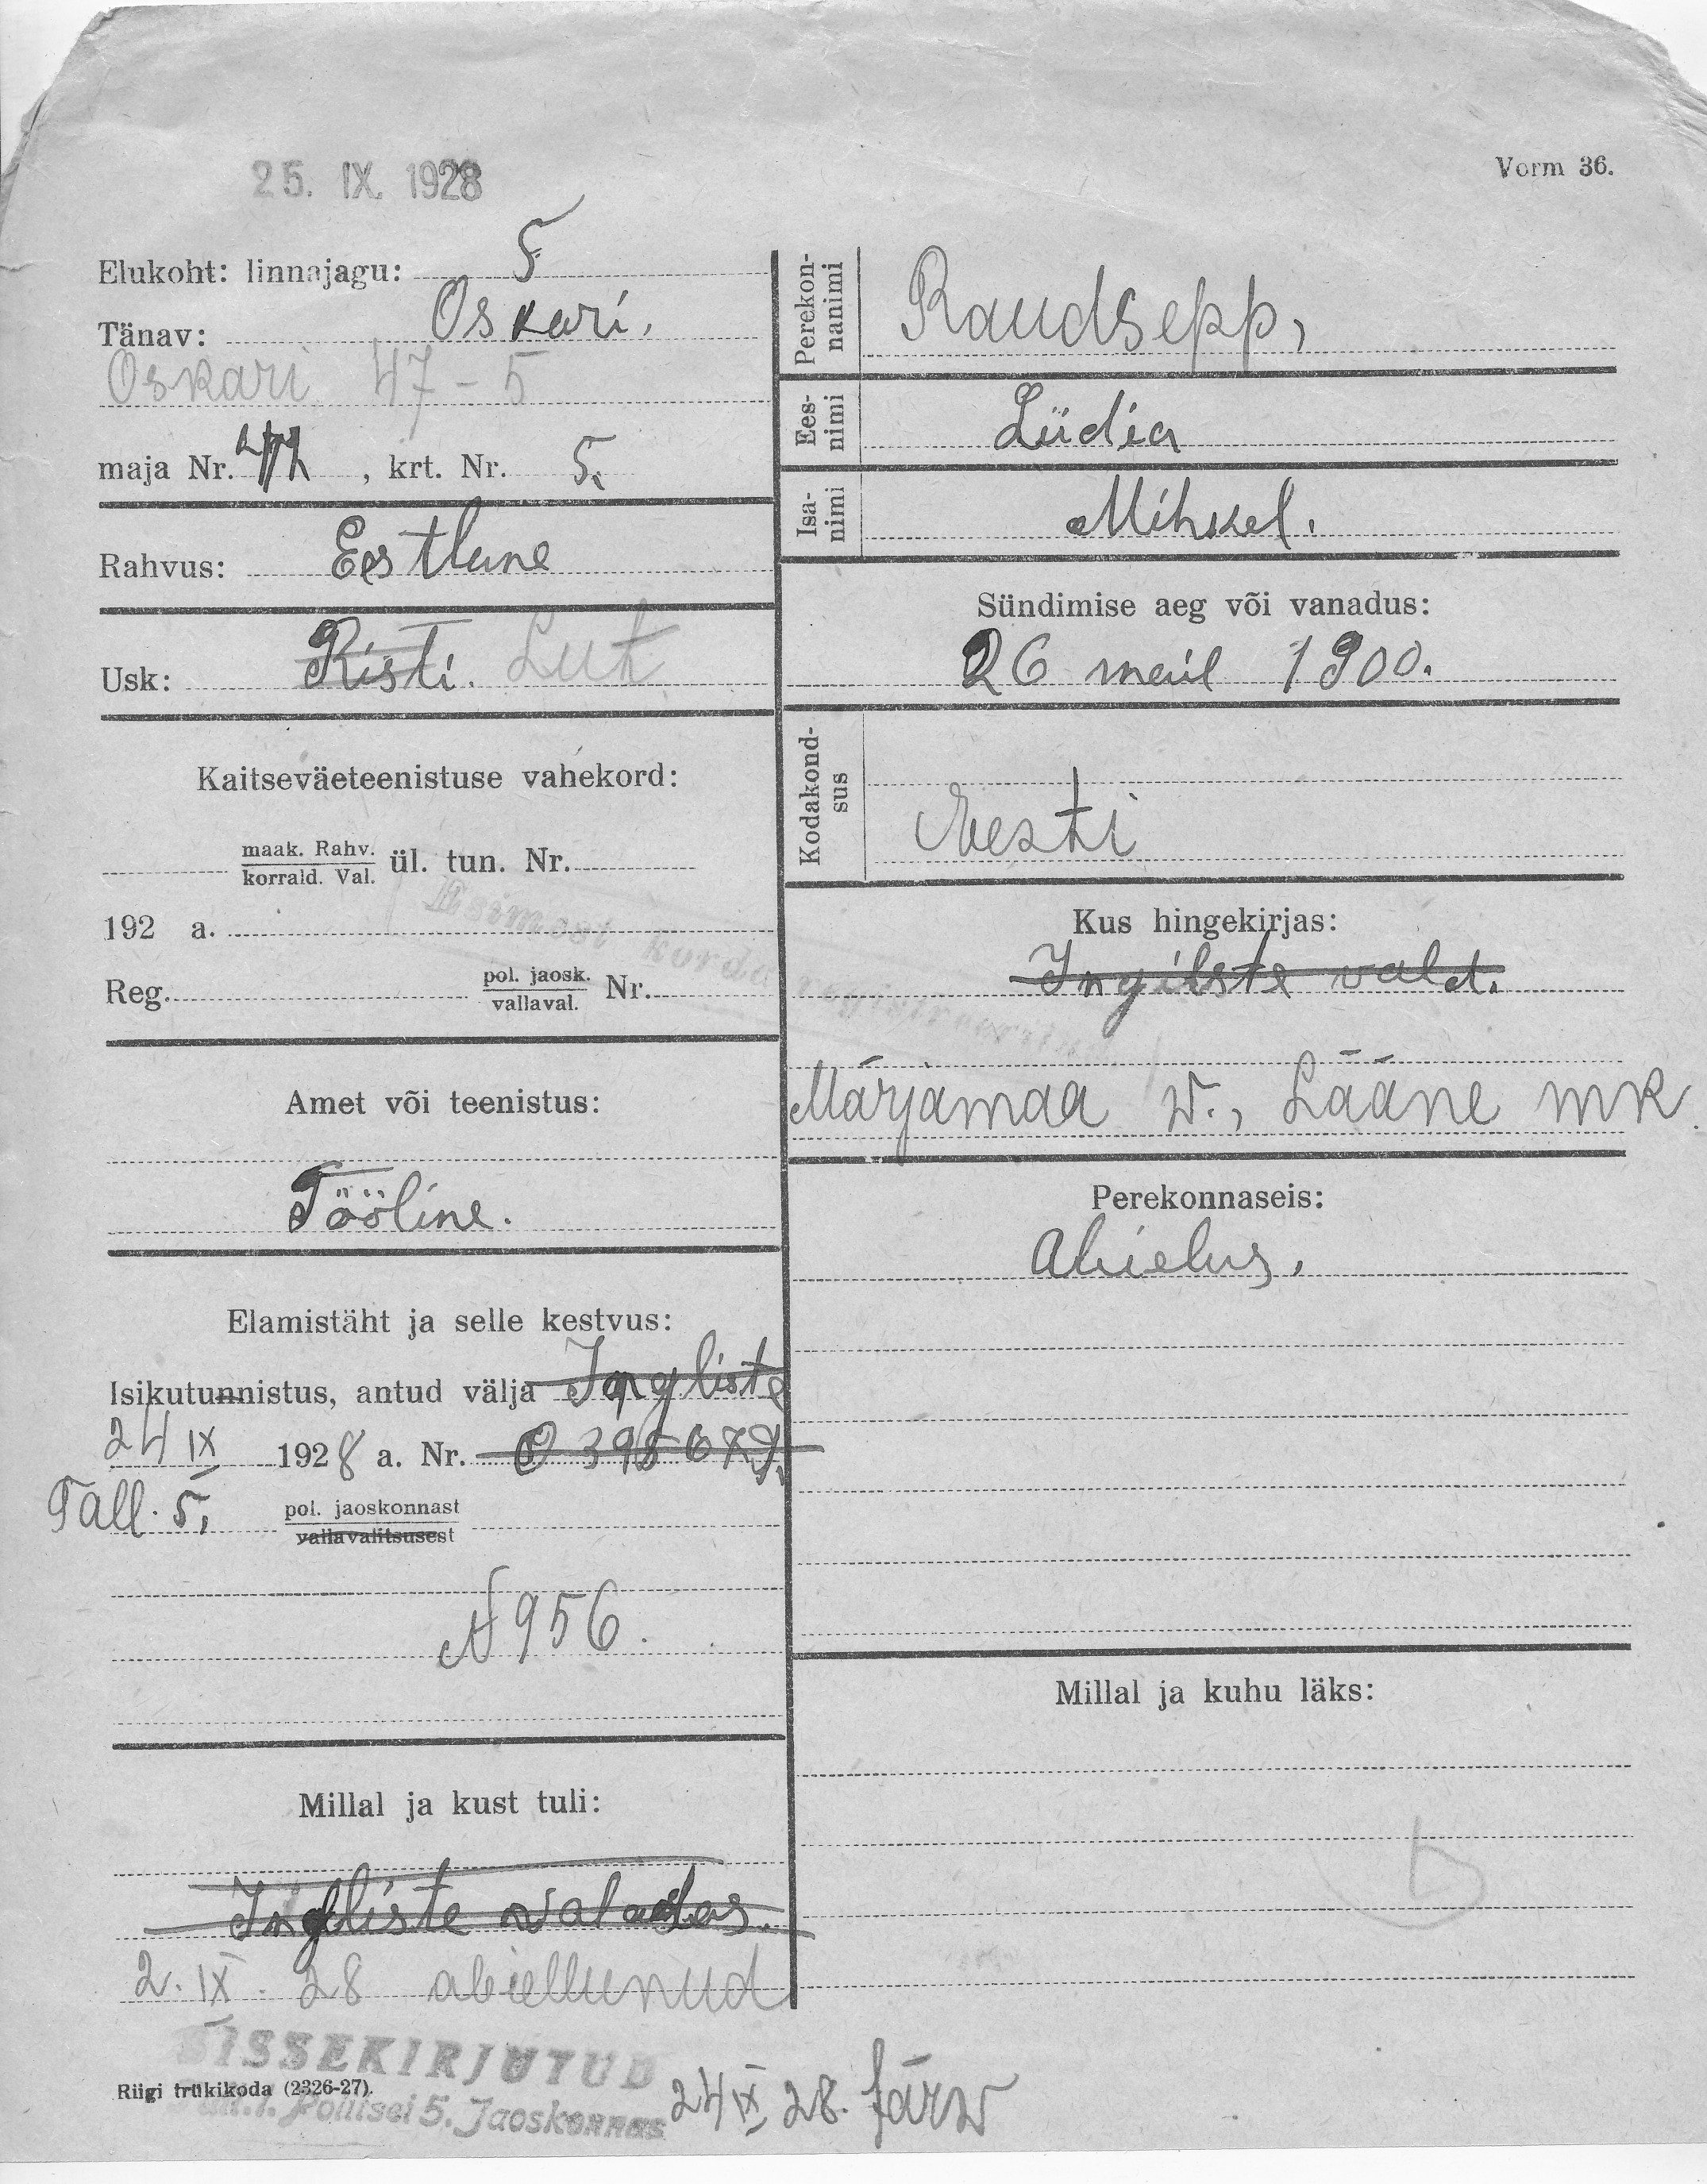 25. IX. 1928
Vorm 36.
Elukoht: linnajagu: 5
Tänav: Oskari.
Oskari 47-5
maja Nr. 47, krt. Nr. 5.
Rahvus: Eestlane
Usk: Risti. Lut
Kaitseväeteenistuse vahekord:
maak. Rahv.
korrald. Val. ül. tun. Nr.
192 a.
Reg. pol. jaosk.
vallaval. Nr.
Esimest korda registreeritud
Amet või teenistus:
Tööline.
Elamistäht ja selle kestvus:
Isikutunnistus, antud välja Ingliste
24 IX 1928 a. Nr.
Tall. 5, pol. jaoskonnast
vallavalitsusest
N 956.
Millal ja kust tuli:
Ingliste
2. IX. 28 abiellunud
SISSEKIRJUTUD
Politsei 5. Jaoskonnas
24 IX 28. Järw
Riigi trükikoda (2326-27).
Perekon-
nanimi
Raudsepp,
Ees-
nimi
Lüdia
Isa-
nimi
Mihkel.
Sündimise aeg või vanadus:
26 mail 1900.
Kodakond-
sus
Eesti
Kus hingekirjas:
Ingilste vald.
Märjamaa w., Lääne mk.
Perekonnaseis:
Abielus,
Millal ja kuhu läks:
b